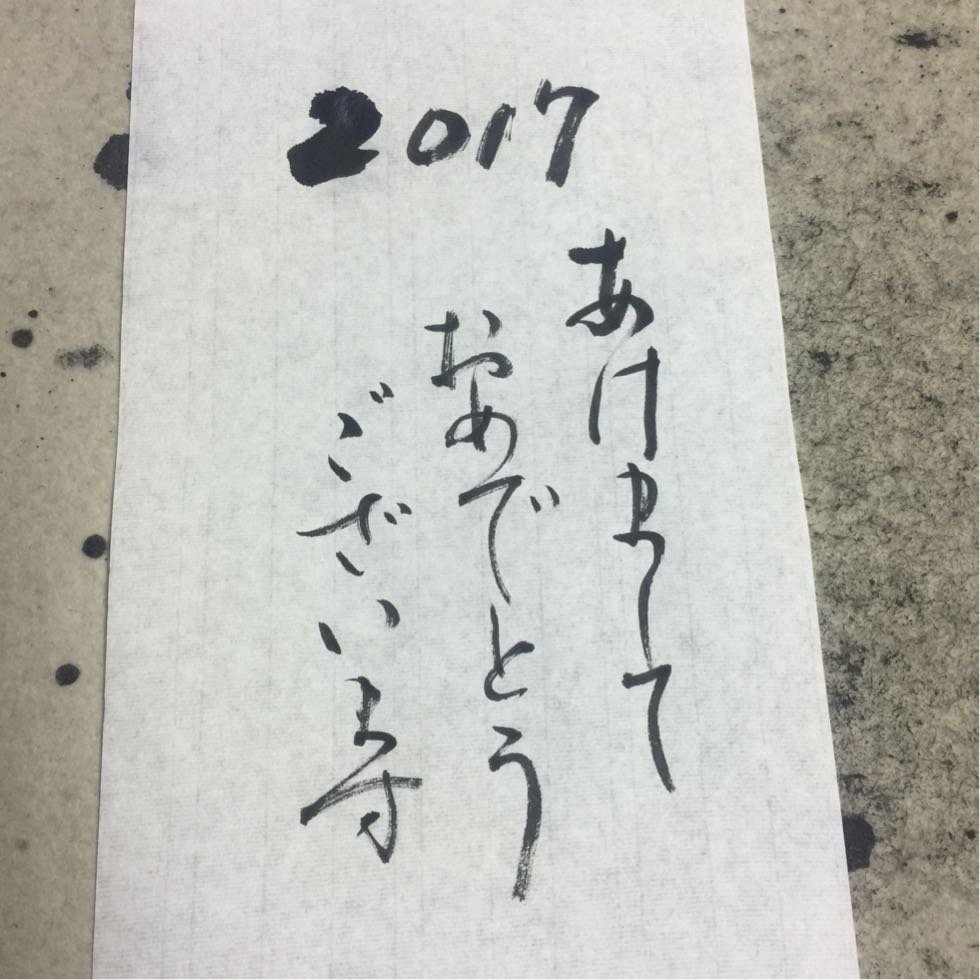 2017
あけまして
おめでとう
ございます